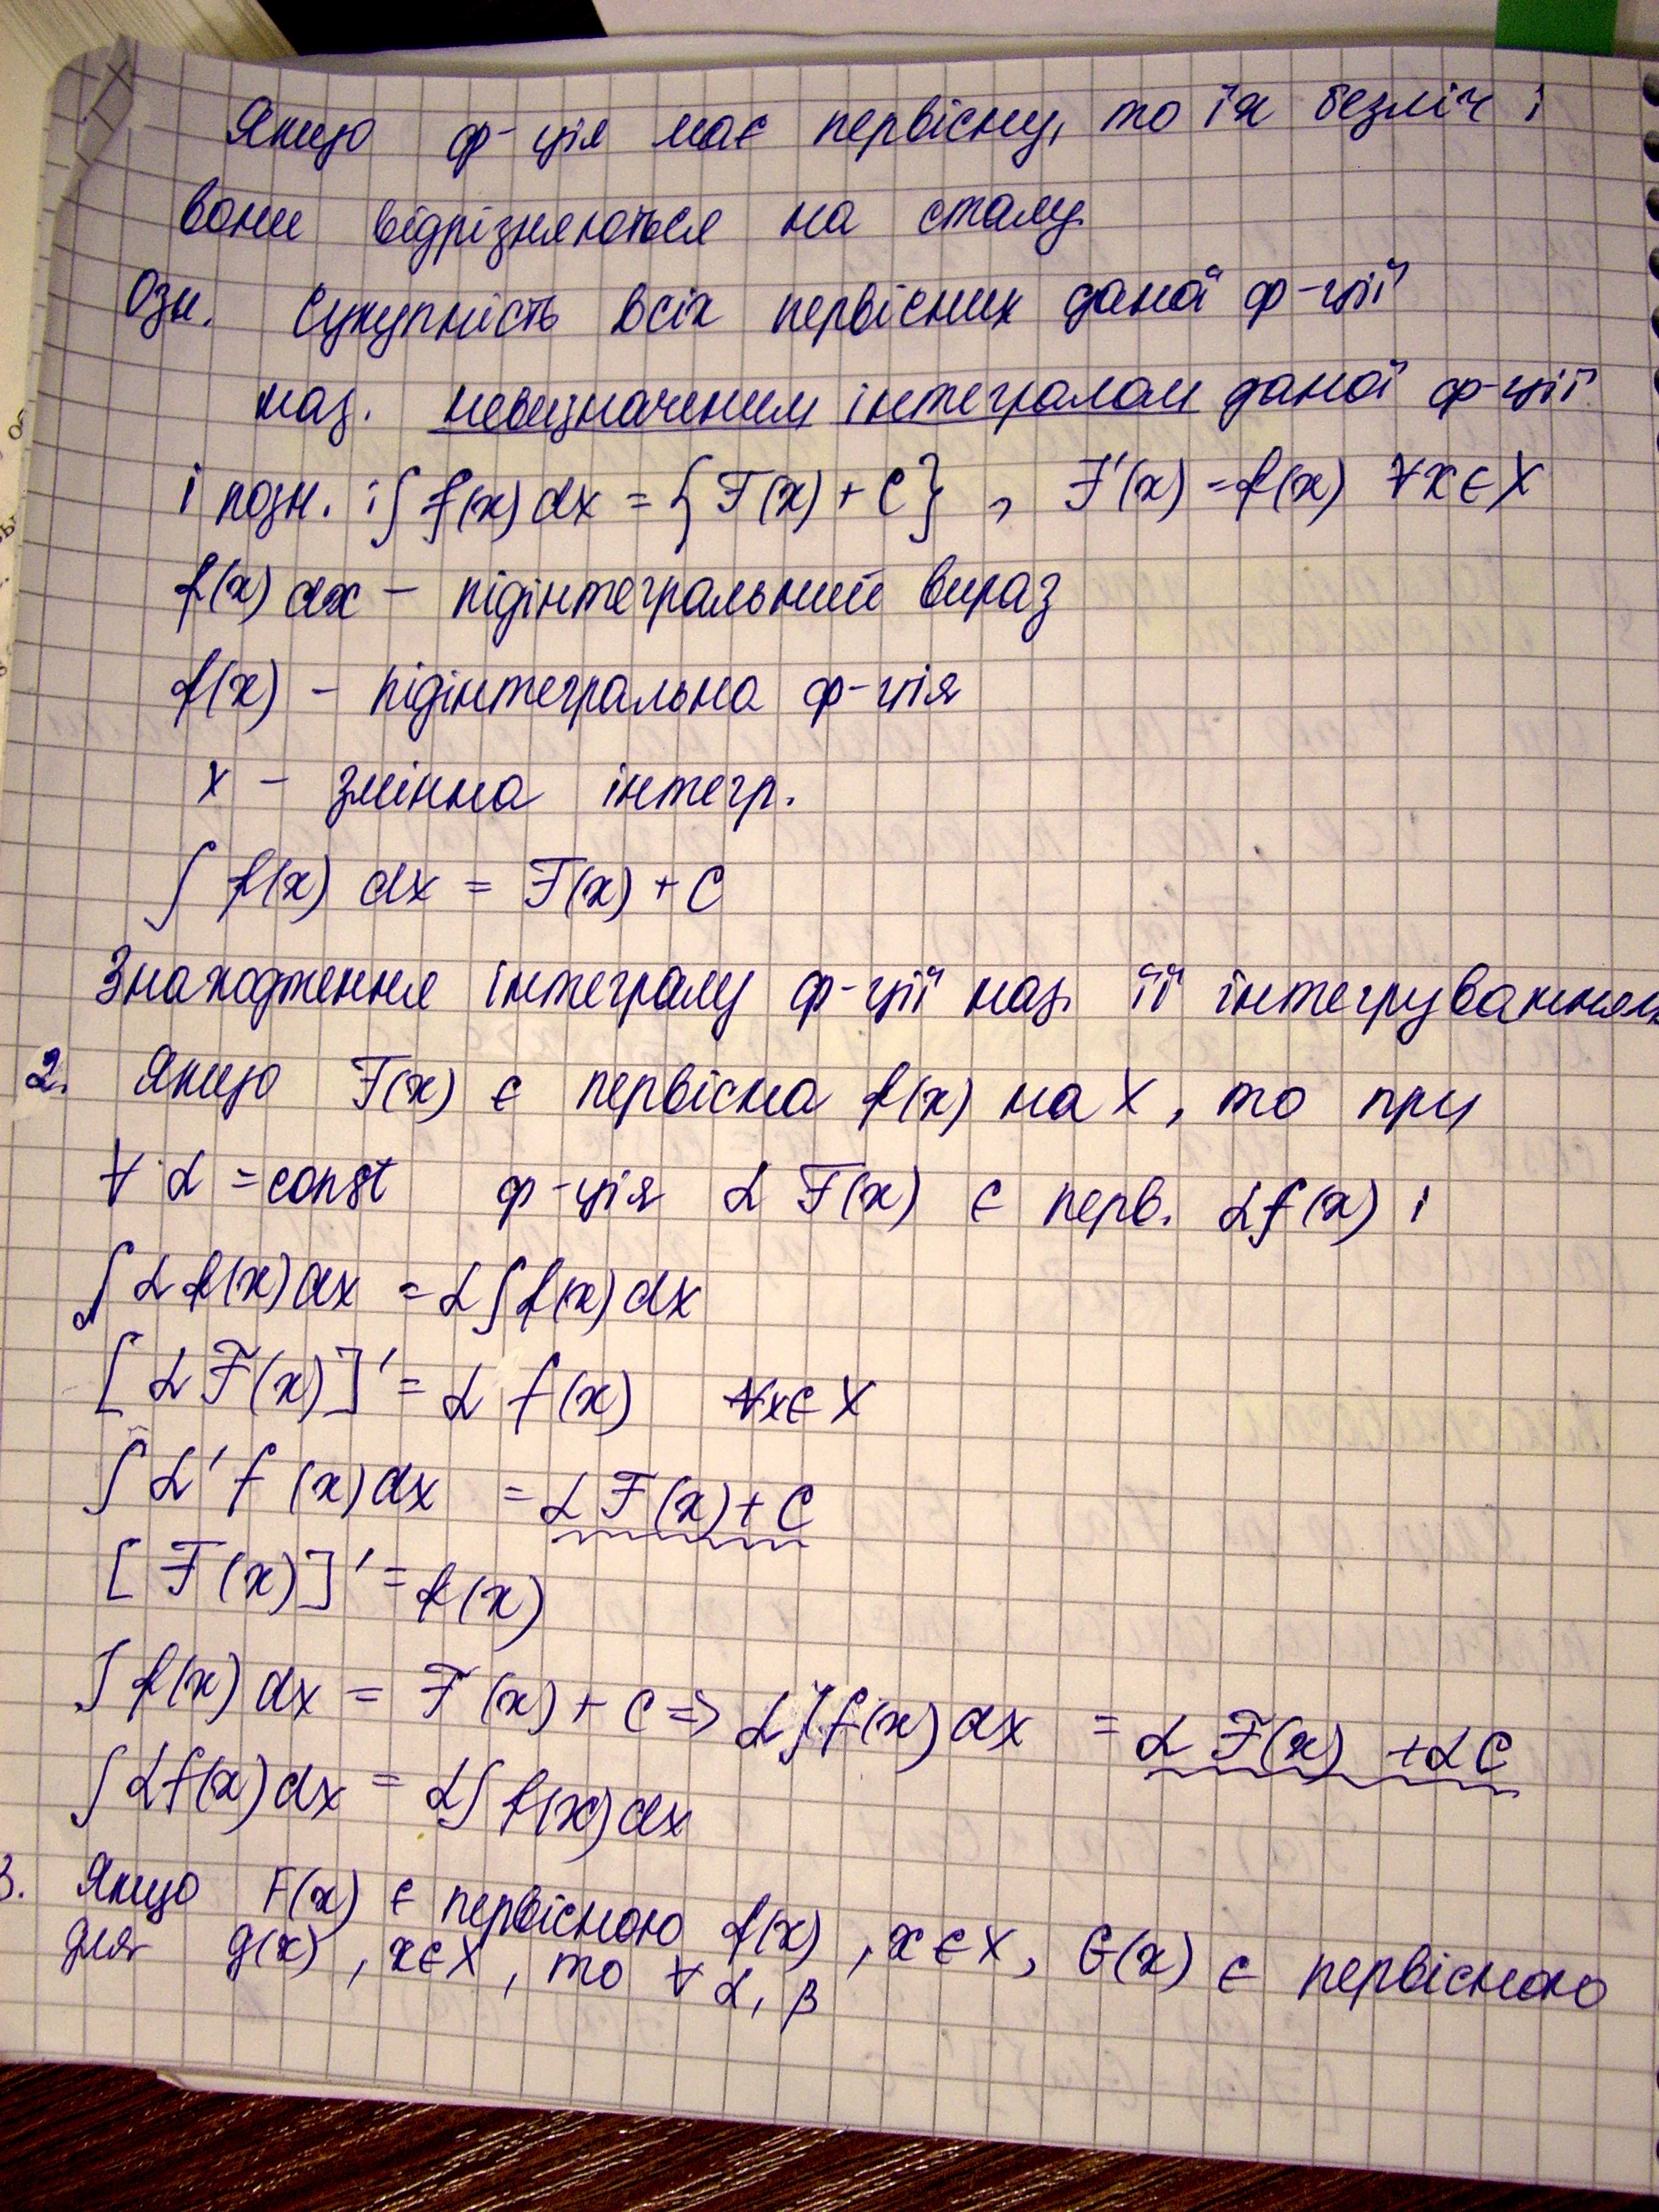 Якщо ф-ція має первісну, то їх безліч і
вони відрізняються на сталу
Озн. Сукупність всіх первісних даної ф-ції
наз. невизначеним інтегралом даної ф-ції
і позн. : ∫ f(x) dx = { F(x) + C } , F'(x) = f(x) ∀x∈X
f(x) dx – підінтегральний вираз
f(x) – підінтегральна ф-ція
x – змінна інтегр.
∫ f(x) dx = F(x) + C
Знаходження інтегралу ф-ції наз. її інтегруванням
2. Якщо F(x) є первісна f(x) на X, то при
∀ α = const ф-ція α F(x) є перв. αf(x) і
∫ α f(x) dx = α ∫ f(x) dx
[ α F(x)]' = α f(x) ∀x∈X
∫ α' f (x) dx = α F(x) + C
[ F(x)]' = f(x)
∫ f(x) dx = F(x) + C ⇒ α ∫ f(x) dx = α F(x) + αC
∫ αf(x) dx = α∫ f(x) dx
3. Якщо F(x) є первісною f(x) , x∈X, G(x) є первісною
для g(x) , x∈X , то ∀ α, β